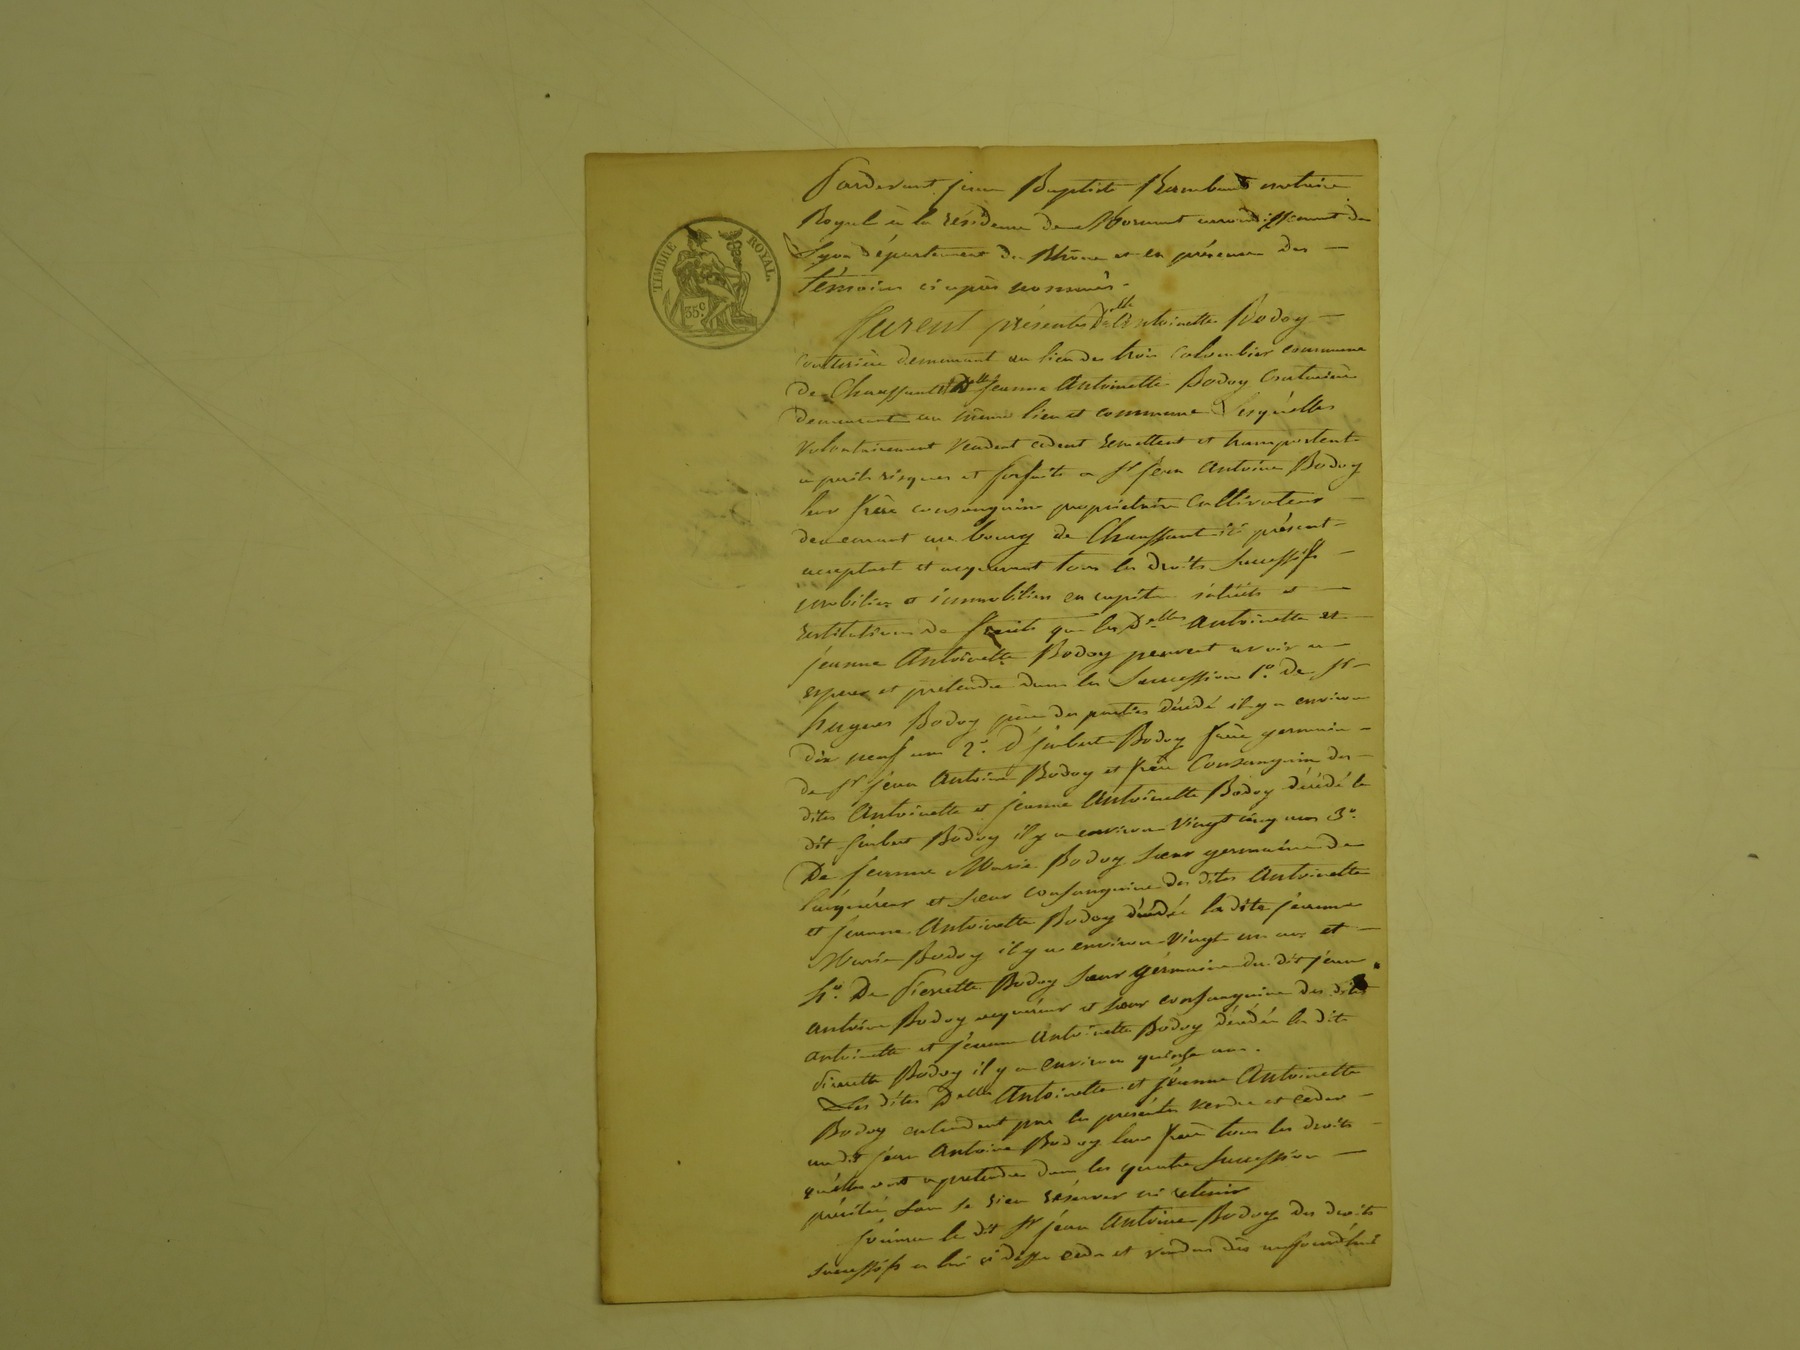 TIMBRE ROYAL
35 c
Pardevant jean Baptiste Rambaud notaire
Royal à la résidence de Mornant arrondissement de
Lyon département du Rhône et en présence des
témoins ci après nommés.
furent présentes Dlle Antoinette Bodoy
couturière demeurant au lieu des trois Colombier commune
de Chaussant & Dlle jeanne Antoinette Bodoy Couturière
demeurant au même lieu et commune Lesquelles
volontairement vendent cèdent remettent et transportent
a perils risques et forfaits a Sr jean Antoine Bodoy
leur frère consanguin propriétaire Cultivateur
demeurant au bourg de Chaussant ici présent
acceptant et acquerant tous les droits Successifs
mobiliers et immobiliers en capital intérêts et
restitution de fruits que les Delles Antoinette et
jeanne Antoinette Bodoy peuvent avoir a
esperer et prétendre dans les Succession 1º. de Sr
hugues Bodoy père des parties décédé il y a environ
dix neuf ans 2º. D'jmbert Bodoy frère germain
de Sr jean Antoine Bodoy et frère Consanguin des
dites Antoinette et jeanne Antoinette Bodoy décédé le
dit jmbert Bodoy il y a environ vingt cinq ans 3º.
De jeanne Marie Bodoy Sœur germaine de
l'acquéreur et sœur consanguine des dites Antoinette
et jeanne Antoinette Bodoy décédée la dite jeanne
Marie Bodoy il y a environ vingt un ans et
4º. De Pierrette Bodoy Sœur germaine du dit jean
Antoine Bodoy acquéreur et Sœur consanguine des dites
antoinette et jeanne Antoinette Bodoy décédée la dite
Pierrette Bodoy il y a environ quinze ans.
Les dites Delles Antoinette et jeanne Antoinette
Bodoy entendent par les présentes vendre et ceder
au dit jean Antoine Bodoy leur frère tous les droits
qu'elles ont a pretendre dans les quatre Succession
précitées Sans se rien réserver ni retenir
Jouira le dit Sr jean Antoine Bodoy des droits
successifs a lui ci dessus cedés et vendus dès aujourd'hui